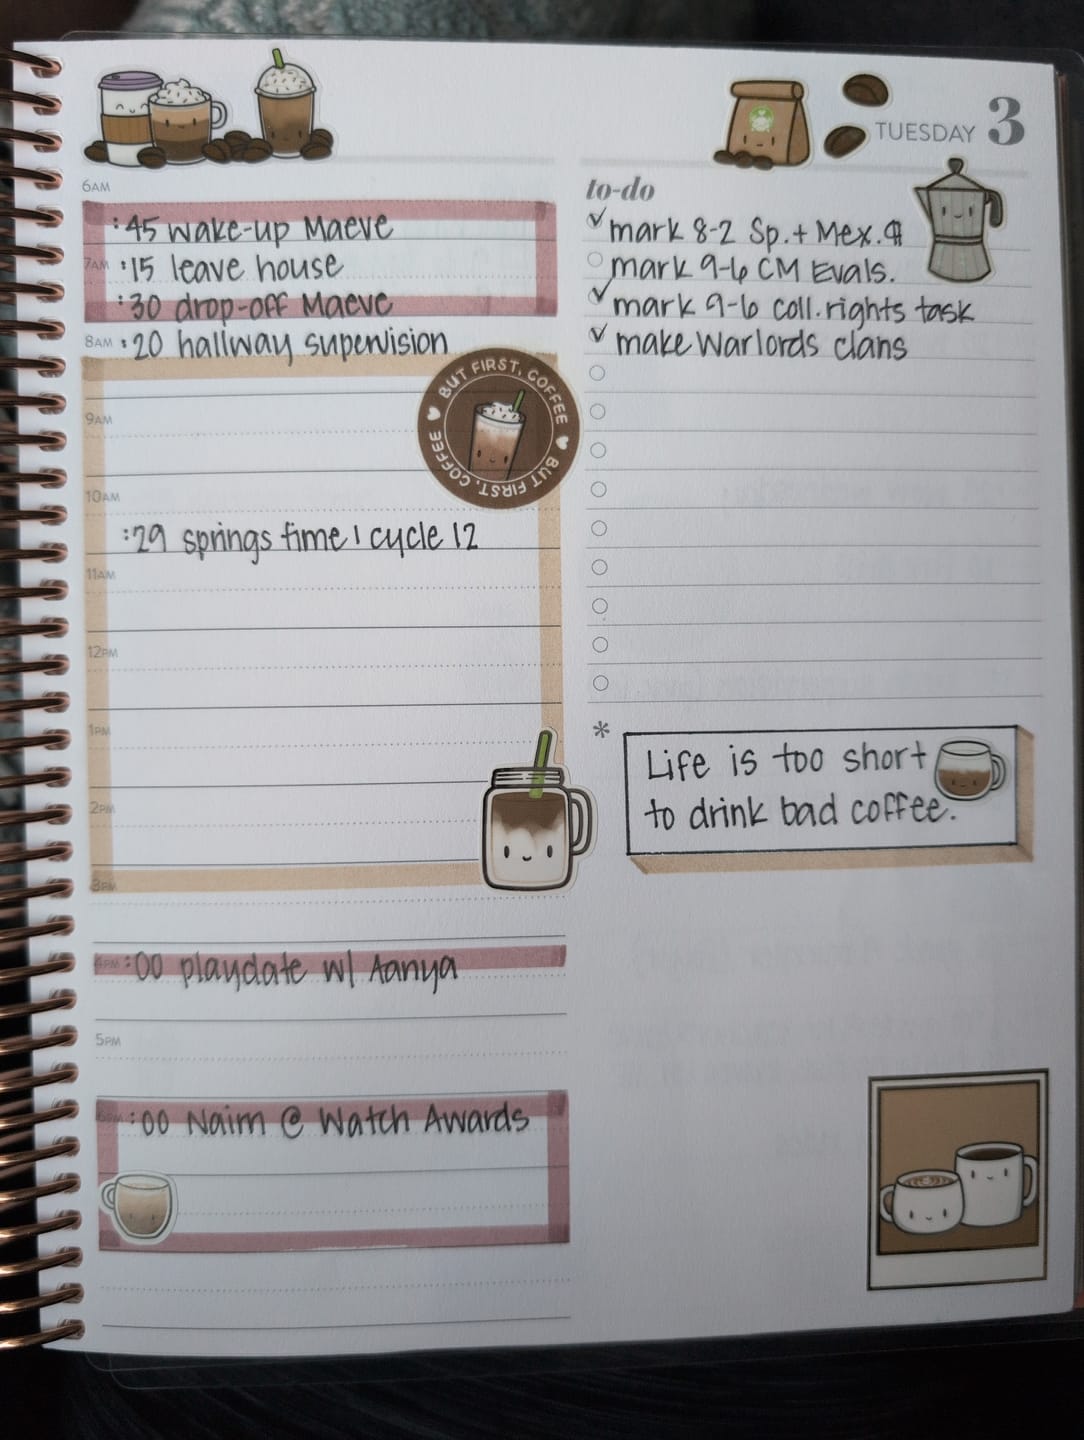 TUESDAY 3
6AM
:45 wake-up Maeve
7AM :15 leave house
:30 drop-off Maeve
8AM :20 hallway supervision
BUT FIRST, COFFEE
BUT FIRST, COFFEE
9AM
10AM
:29 springs time 1 cycle 12
11AM
12PM
1PM
2PM
3PM
4PM :00 playdate w/ Aanya
5PM
6PM :00 Naim @ Watch Awards
to-do
mark 8-2 Sp. + Mex.
mark 9-6 CM Evals.
mark 9-6 coll. rights task
make Warlords clans
*
Life is too short
to drink bad coffee.